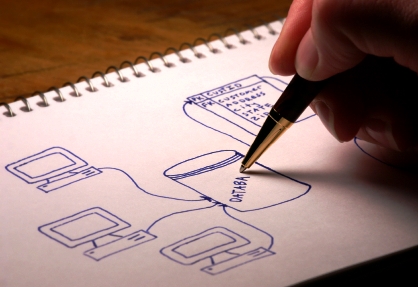 PK CUSTID
FK CUSTOMER
ADDRESS
CITY
STATE
ZIP
DATABA